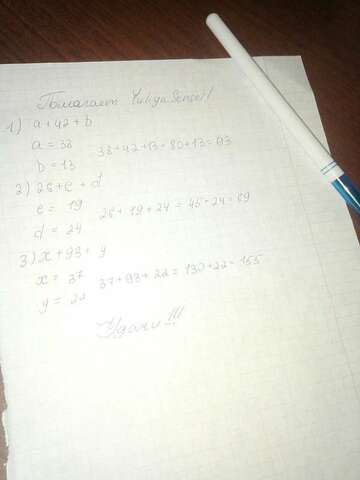 Помагает YuliyaSensei!
1) a + 42 + b
a = 38
b = 13
38 + 42 + 13 = 80 + 13 = 93
2) 26 + c + d
c = 19
d = 24
26 + 19 + 24 = 45 + 24 = 69
3) x + 93 + y
x = 37
y = 22
37 + 93 + 22 = 130 + 22 = 155
Удачи!!!